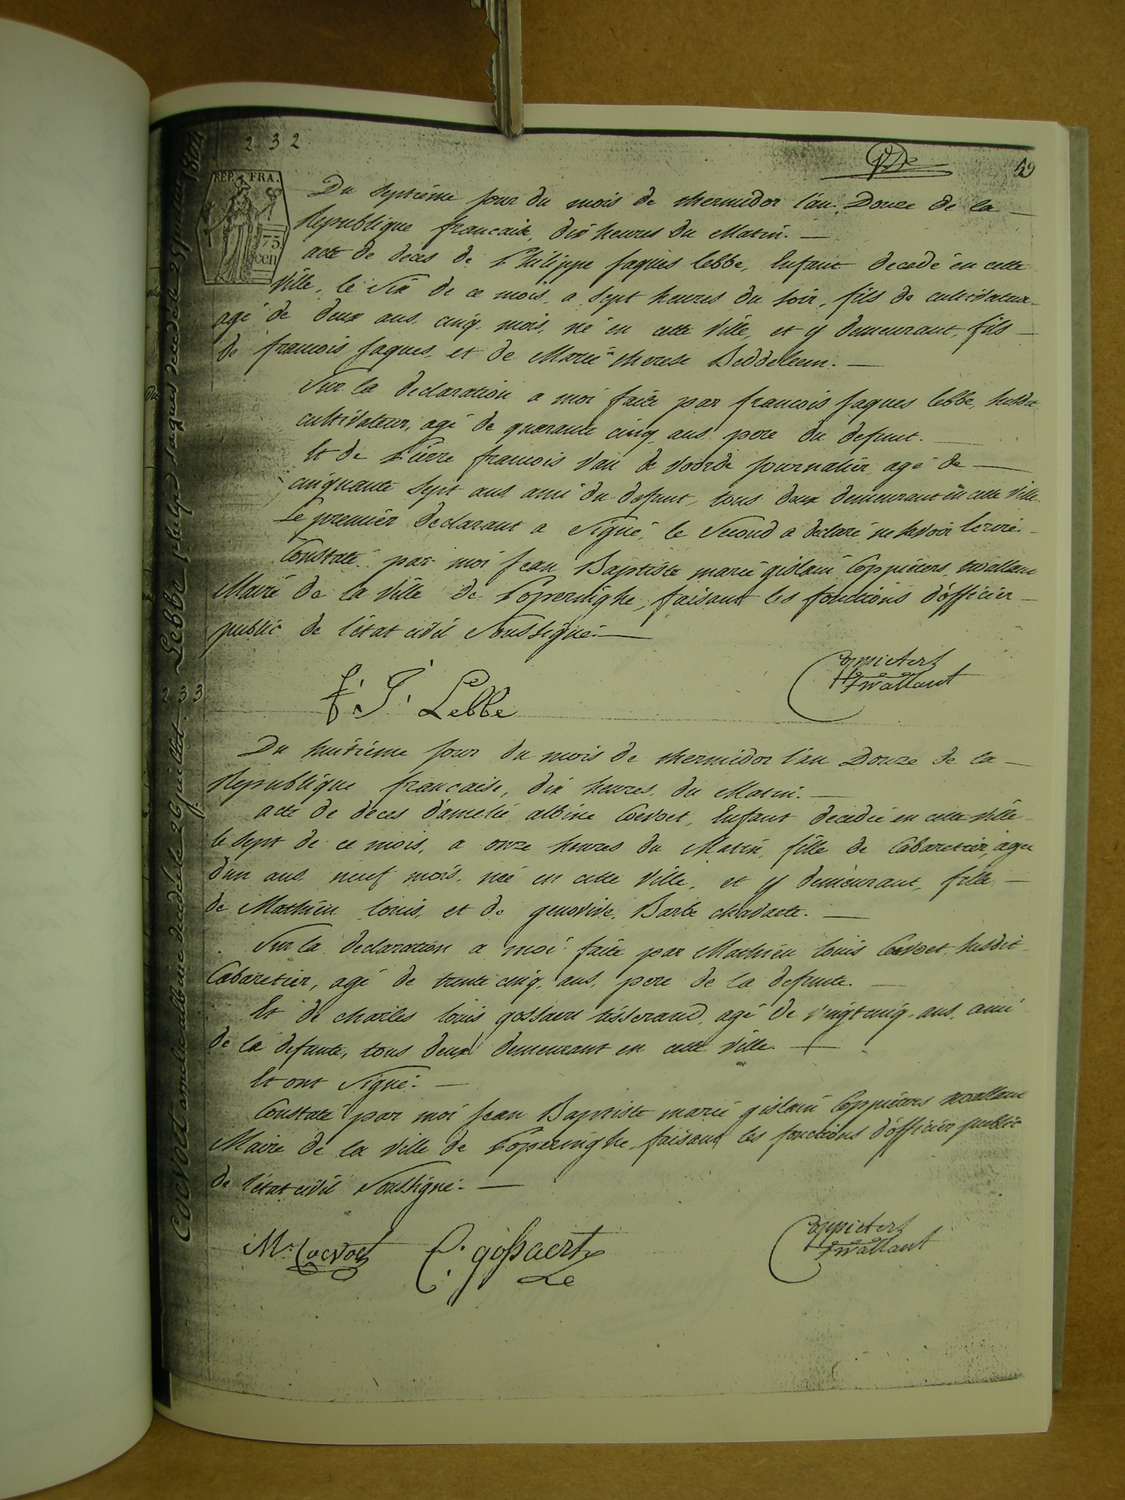 232
REP. FRA.
75
cen
Du septième jour du mois de thermidor l'an Douze de la
Republique francaise, dix heures du Matin.
acte de deces de Philippe Jaques Lebbe, Enfant decedé en cette
ville, le six de ce mois, a sept heures du soir, fils de cultivateur
agé de deux ans cinq mois, né en cette ville, et y demeurant, fils
de francois Jaques et de Marie therese
Sur la declaration a moi faite par francois Jaques Lebbe, susdit
cultivateur, agé de quarante cinq ans, pere du defunt.
Et de Pierre francois van de voorde journalier agé de
cinquante sept ans ami du defunt, tous deux demeurant en cette ville
Le premier declarant a signé, le second a declaré ne savoir Ecrire
Constaté par moi Jean Baptiste marie gislain Coppieters wallant
Maire de la ville de Poperinghe, faisant les fonctions d'officier
public de l'état civil soussigné.
f. J. Lebbe
Coppieters
Twallant
233
Du huitième jour du mois de thermidor l'an Douze de la
Republique francaise, dix heures du Matin.
acte de deces d'amelie albine Coevoet, Enfant decedée en cette ville
le sept de ce mois, a onze heures du Matin, fille de Cabaretier agée
d'un ans neuf mois, née en cette ville, et y demeurant, fille
de Mathieu louis, et de genovive Barbe
Sur la declaration a moi faite par Mathieu louis Coevoet susdit
Cabaretier, agé de trente cinq ans, pere de la defunte.
Et de charles louis gossaert tisserand, agé de vingt cinq ans, ami
de la defunte, tous deux demeurant en cette ville
Et ont signé.
Constaté par moi Jean Baptiste marie gislain Coppieters wallant
Maire de la ville de Poperinghe faisant les fonctions d'officier public
de l'état civil soussigné.
M. L. Coevoet
C. gossaert
Coppieters
Twallant